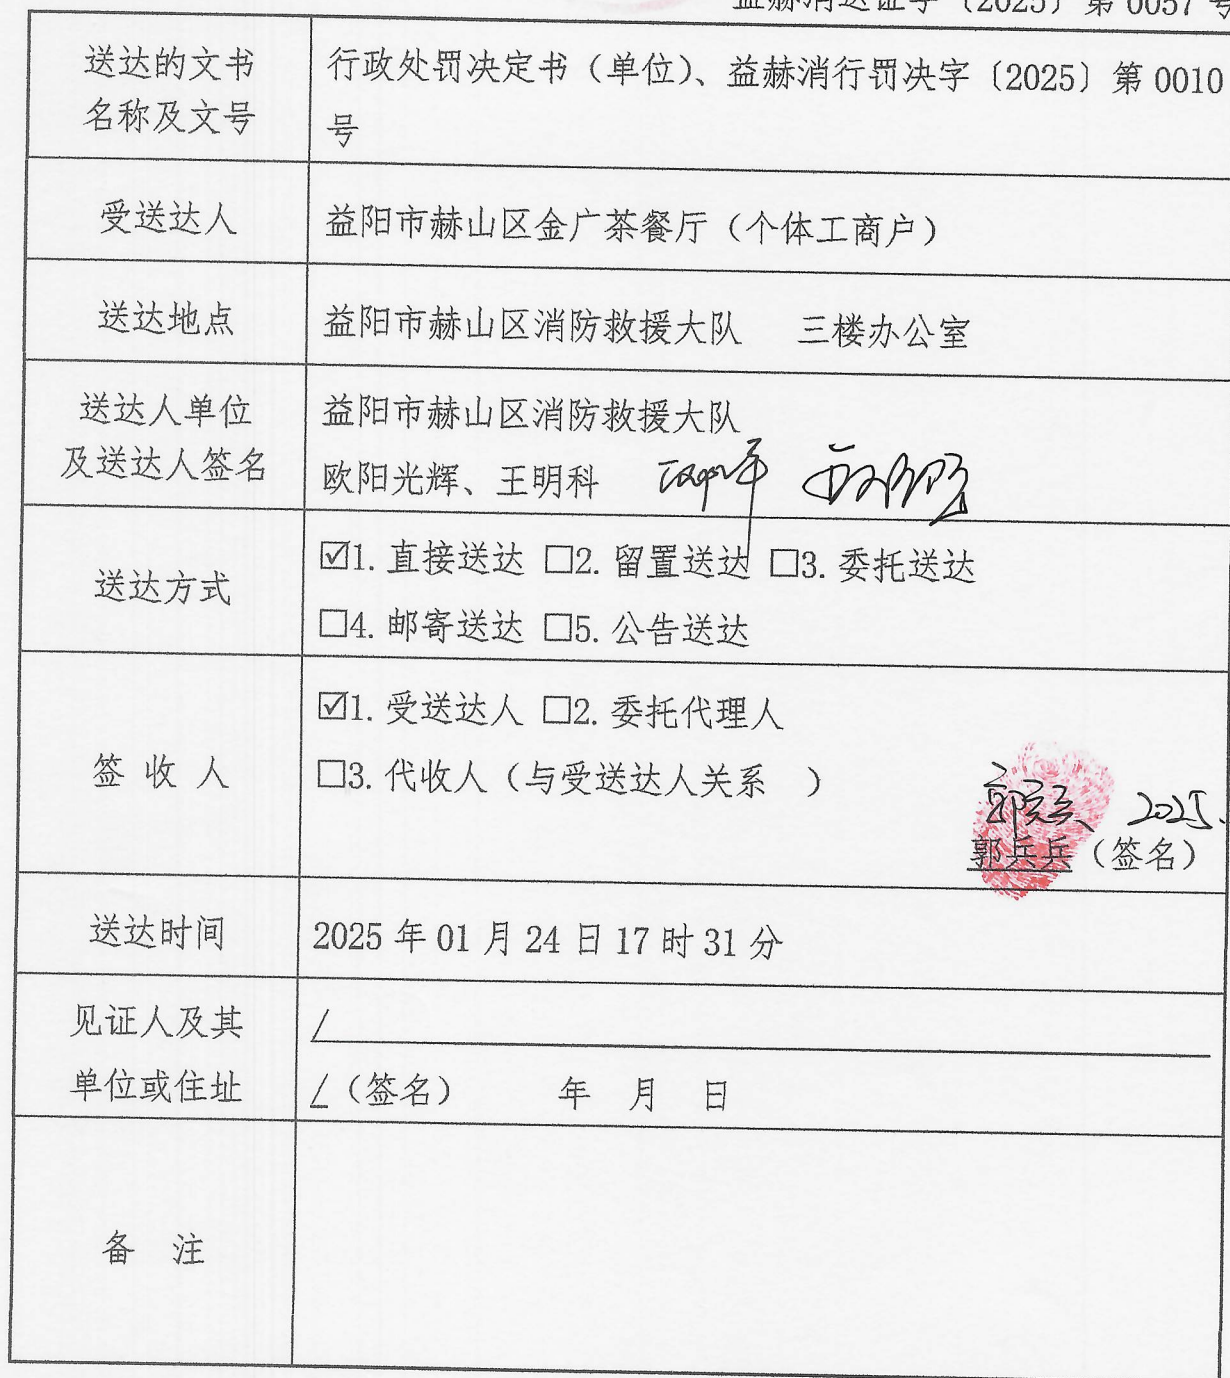 益赫消送证字〔2025〕第 0057 号
送达的文书
名称及文号
行政处罚决定书（单位）、益赫消行罚决字〔2025〕第 0010
号
受送达人
益阳市赫山区金广茶餐厅（个体工商户）
送达地点
益阳市赫山区消防救援大队 三楼办公室
送达人单位
及送达人签名
益阳市赫山区消防救援大队
欧阳光辉、王明科
送达方式
☑1. 直接送达 □2. 留置送达 □3. 委托送达
□4. 邮寄送达 □5. 公告送达
签 收 人
☑1. 受送达人 □2. 委托代理人
□3. 代收人（与受送达人关系 ）
郭兵兵 2025.
郭兵兵（签名）
送达时间
2025 年 01 月 24 日 17 时 31 分
见证人及其
单位或住址
/
/（签名） 年 月 日
备 注